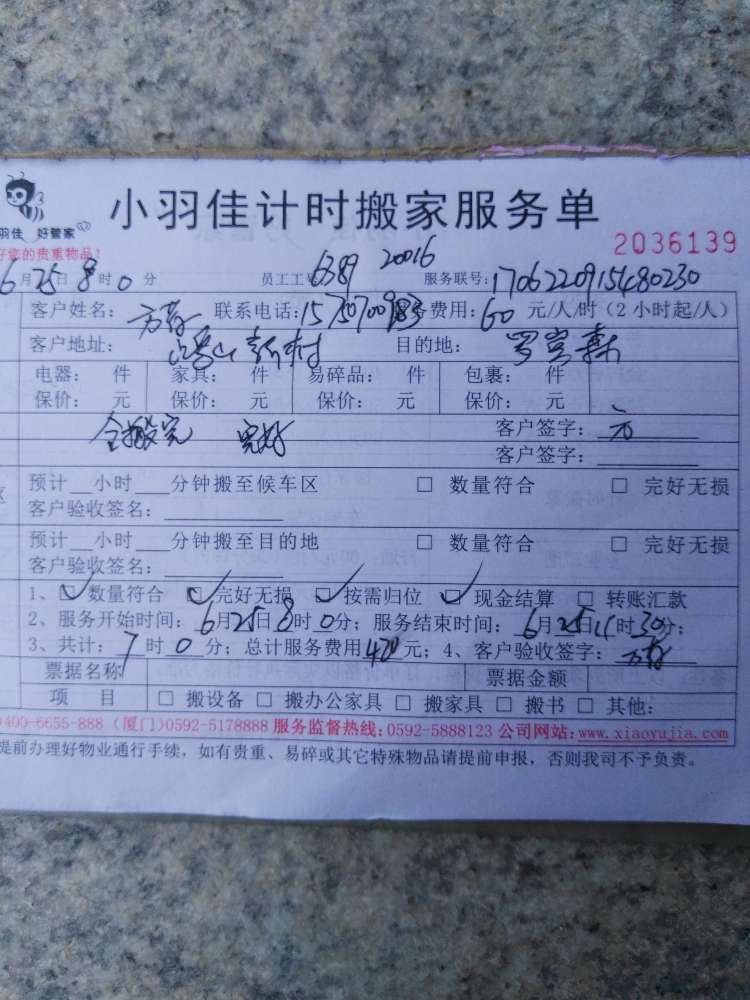 小羽佳计时搬家服务单
羽佳 好管家
好您的贵重物品!
2036139
6月25日8时0分 员工工号 6389 20016 服务联号:1706220915480230
客户姓名: 联系电话: 服务费用:60元/人/时(2小时起/人)
客户地址: 新村 目的地:
电器: 件 家具: 件 易碎品: 件 包裹: 件
保价: 元 保价: 元 保价: 元 保价: 元
全搬完 完好 客户签字: 方
客户签字:
预计__小时___分钟搬至候车区 □ 数量符合 □ 完好无损
客户验收签名:
预计__小时___分钟搬至目的地 □ 数量符合 □ 完好无损
客户验收签名:
1、☑数量符合 ☑完好无损 ☑按需归位 ☑现金结算 □ 转账汇款
2、服务开始时间:6月25日8时0分;服务结束时间:6月25日11时30分;
3、共计:7时0分;总计服务费用420元;4、客户验收签字:
票据名称 票据金额
项 目 □ 搬设备 □ 搬办公家具 □ 搬家具 □ 搬书 □ 其他:
400-6655-888 (厦门)0592-5178888 服务监督热线:0592-5888123 公司网站:www.xiaoyujia.com
提前办理好物业通行手续,如有贵重、易碎或其它特殊物品请提前申报,否则我司不予负责。